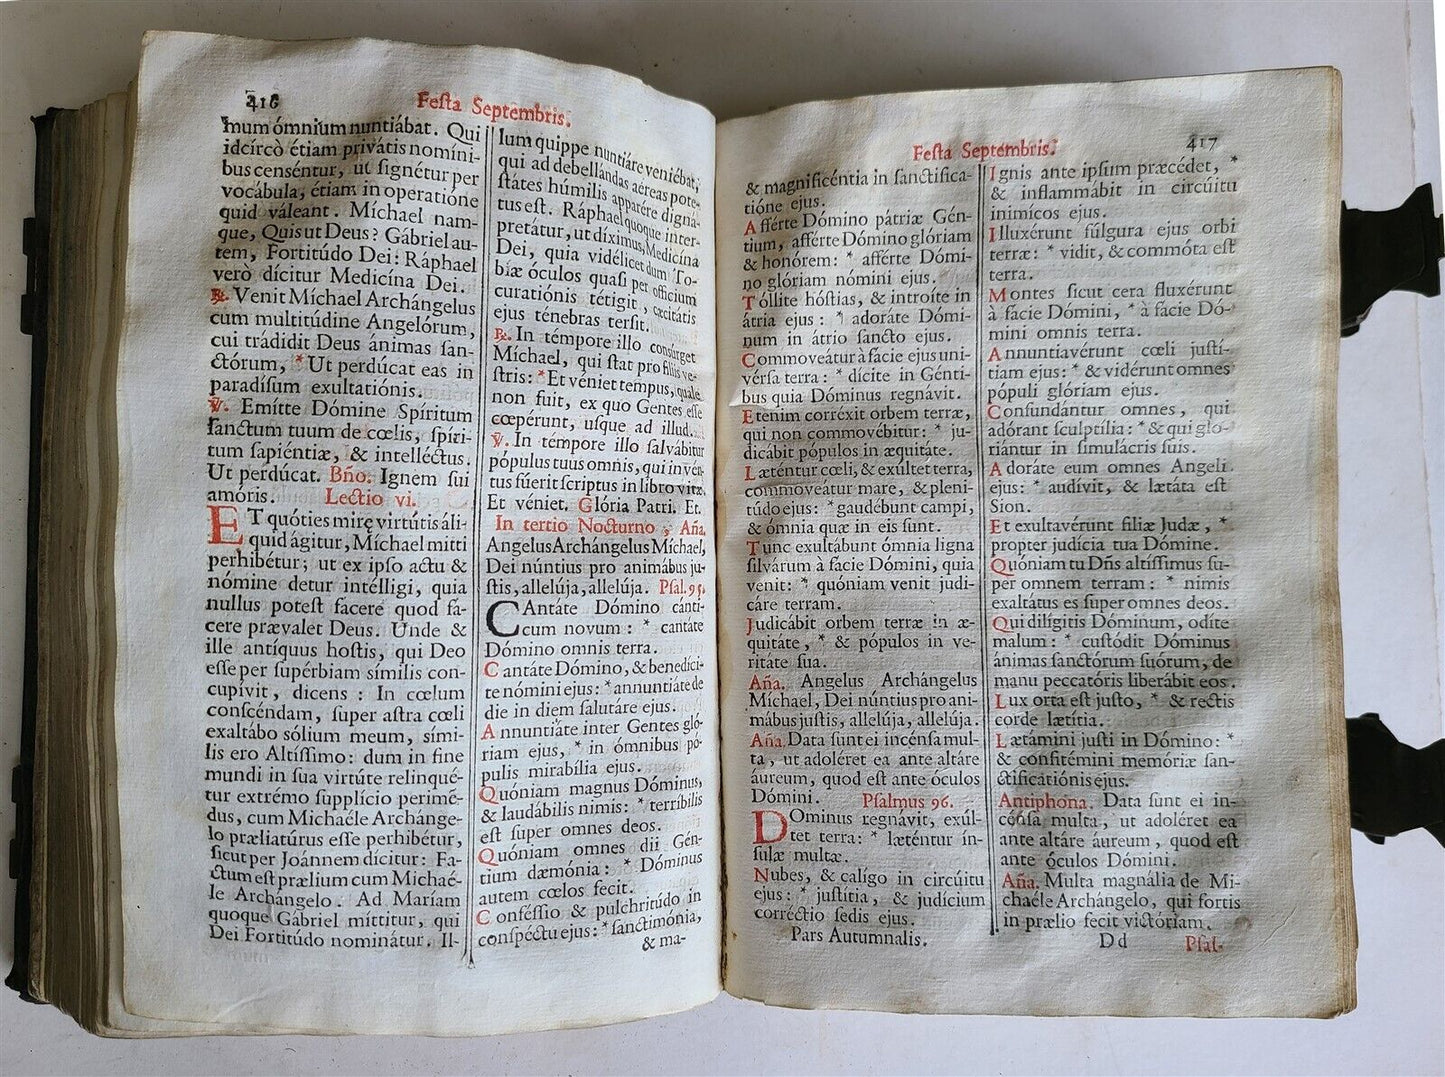 416
Festa Septembris.
mum ómnium nuntiábat. Qui
idcírcò étiam privátis nomíni-
bus censéntur, ut signétur per
vocábula, étiam in operatióne
quid váleant. Míchael nam-
que, Quis ut Deus? Gábriel au-
tem, Fortitúdo Dei: Ráphael
verò dícitur Medicína Dei.
℟. Venit Míchael Archángelus
cum multitúdine Angelórum,
cui trádidit Deus ánimas san-
ctórum, * Ut perdúcat eas in
paradísum exultatiónis.
℣. Emítte Dómine Spíritum
sanctum tuum de cœlis, spíri-
tum sapiéntiæ, & intelléctus.
Ut perdúcat. Bño. Ignem sui
amóris. Lectio vi.
ET quóties miręvirtútis áli-
quid ágitur, Míchael mitti
perhibétur; ut ex ipso actu &
nómine detur intélligi, quia
nullus potest fácere quod fá-
cere prævalet Deus. Unde &
ille antíquus hostis, qui Deo
esse per supérbiam símilis con-
cupívit, dicens: In cœlum
conscéndam, super astra cœli
exaltábo sólium meum, sími-
lis ero Altíssimo: dum in fine
mundi in sua virtúte relinqué-
tur extrémo supplício perimé-
dus, cum Michaéle Archánge-
lo præliatúrus esse perhibétur,
sicut per Joánnem dícitur: Fa-
ctum est prælium cum Michaé-
le Archángelo. Ad Maríam
quoque Gábriel míttitur, qui
Dei Fortitúdo nominátur. Il-
lum quippe nuntiáre veniébat,
qui ad debellándas aéreas pote-
státes húmilis apparére digná-
tus est. Ráphael quoque inter-
pretátur, ut díximus, Medicína
Dei, quia vidélicet dum To-
biæ óculos quasi per offícium
curatiónis tétigit, cæcitátis
ejus ténebras tersit.
℟. In témpore illo consúrget
Míchael, qui stat pro fíliis ve-
stris: * Et véniet tempus, quale
non fuit, ex quo Gentes esse
cœpérunt, usque ad illud.
℣. In témpore illo salvábitur
pópulus tuus omnis, qui invén-
tus fúerit scriptus in libro vitæ.
Et véniet. Glória Patri. Et.
In tertio Nocturno, Aña.
Angelus Archángelus Míchael,
Dei núntius pro animábus ju-
stis, allelúja, allelúja. Psal. 95.
CAntáte Dómino cánti-
cum novum: * cantáte
Dómino omnis terra.
Cantáte Dómino, & benedíci-
te nómini ejus: * annuntiáte de
die in diem salutáre ejus.
Annuntiáte inter Gentes gló-
riam ejus, * in ómnibus pó-
pulis mirabília ejus.
Quóniam magnus Dóminus,
& laudábilis nimis: * terríbilis
est super omnes deos.
Quóniam omnes dii Gén-
tium dæmónia: * Dóminus
autem cœlos fecit.
Conféssio & pulchritúdo in
conspéctu ejus: * sanctimónia,
& ma-
Festa Septembris.
417
& magnificéntia in sanctifica-
tióne ejus.
Afférte Dómino pátriæ Gén-
tium, afférte Dómino glóriam
& honórem: * afférte Dómi-
no glóriam nómini ejus.
Tóllite hóstias, & introíte in
átria ejus: * adoráte Dómi-
num in átrio sancto ejus.
Commoveátur à fácie ejus uni-
vérsa terra: * dícite in Génti-
bus quia Dóminus regnávit.
Etenim corréxit orbem terræ,
qui non commovébitur: * ju-
dicábit pópulos in æquitáte.
Læténtur cœli, & exúltet terra,
commoveátur mare, & pleni-
túdo ejus: * gaudébunt campi,
& ómnia quæ in eis sunt.
Tunc exultábunt ómnia ligna
silvárum à fácie Dómini, quia
venit: * quóniam venit judi-
cáre terram.
Judicábit orbem terræ in æ-
quitáte, * & pópulos in ve-
ritáte sua.
Aña. Angelus Archángelus
Míchael, Dei núntius pro ani-
mábus justis, allelúja, allelúja.
Aña. Data sunt ei incénsa mul-
ta, ut adoléret ea ante altáre
áureum, quod est ante óculos
Dómini. Psalmus 96.
DOminus regnávit, exúl-
tet terra: * læténtur ín-
sulæ multæ.
Nubes, & calígo in circúitu
ejus: * justítia, & judícium
corréctio sedis ejus.
Pars Autumnalis.
Ignis ante ipsum præcédet, *
& inflammábit in circúitu
inimícos ejus.
Illuxérunt fúlgura ejus orbi
terræ: * vidit, & commóta est
terra.
Montes sicut cera fluxérunt
à fácie Dómini, * à fácie Dó-
mini omnis terra.
Annuntiavérunt cœli justí-
tiam ejus: * & vidérunt omnes
pópuli glóriam ejus.
Confundántur omnes, qui
adórant sculptília: * & qui glo-
riántur in simulácris suis.
Adoráte eum omnes Angeli
ejus: * audívit, & lætáta est
Sion.
Et exultavérunt fíliæ Judæ, *
propter judícia tua Dómine.
Quóniam tu Dñs altíssimus su-
per omnem terram: * nimis
exaltátus es super omnes deos.
Qui dilígitis Dóminum, odíte
malum: * custódit Dóminus
ánimas sanctórum suórum, de
manu peccatóris liberábit eos.
Lux orta est justo, * & rectis
corde lætítia.
Lætámini justi in Dómino: *
& confitémini memóriæ san-
ctificatiónis ejus.
Antiphona. Data sunt ei in-
cénsa multa, ut adoléret ea
ante altáre áureum, quod est
ante óculos Dómini.
Aña. Multa magnália de Mi-
chaéle Archángelo, qui fortis
in prælio fecit victóriam.
Dd Psal-